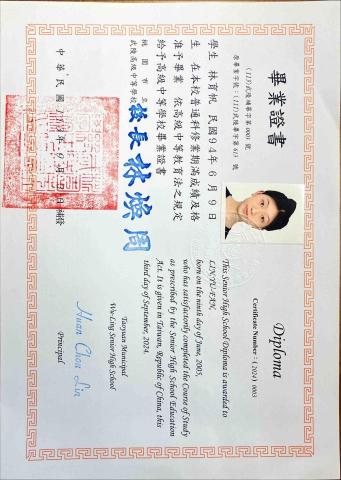 畢業證書
學生 林育帆 民國94年6月9日
生 在本校普通科修業期滿成績及格
准予畢業 依高級中等教育法之規定
給予高級中等學校畢業證書
桃園市立
武陵高級中等學校
校長 林煥周
中華民國
Diploma
Certificate Number : (2024) 0003
This Senior High School Diploma is awarded to
LIN,YU-FAN,
born on the ninth day of June, 2005,
who has satisfactorily completed the Course of Study
as prescribed by the Senior High School Education
Act. It is given in Taiwan, Republic of China, this
third day of September, 2024.
Taoyuan Municipal
Wu-Ling Senior High School
Huan Chou Lin
Principal